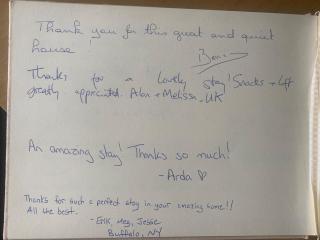 Thank you for this great and quiet
house!
Thanks for a lovely stay! Snacks + gift
greatly appreciated. Alan + Melissa, UK
An amazing stay! Thanks so much!
- Arda ♡
Thanks for such a perfect stay in your amazing home!!
All the best.
- Erik, Meg, Jessie
Buffalo, NY